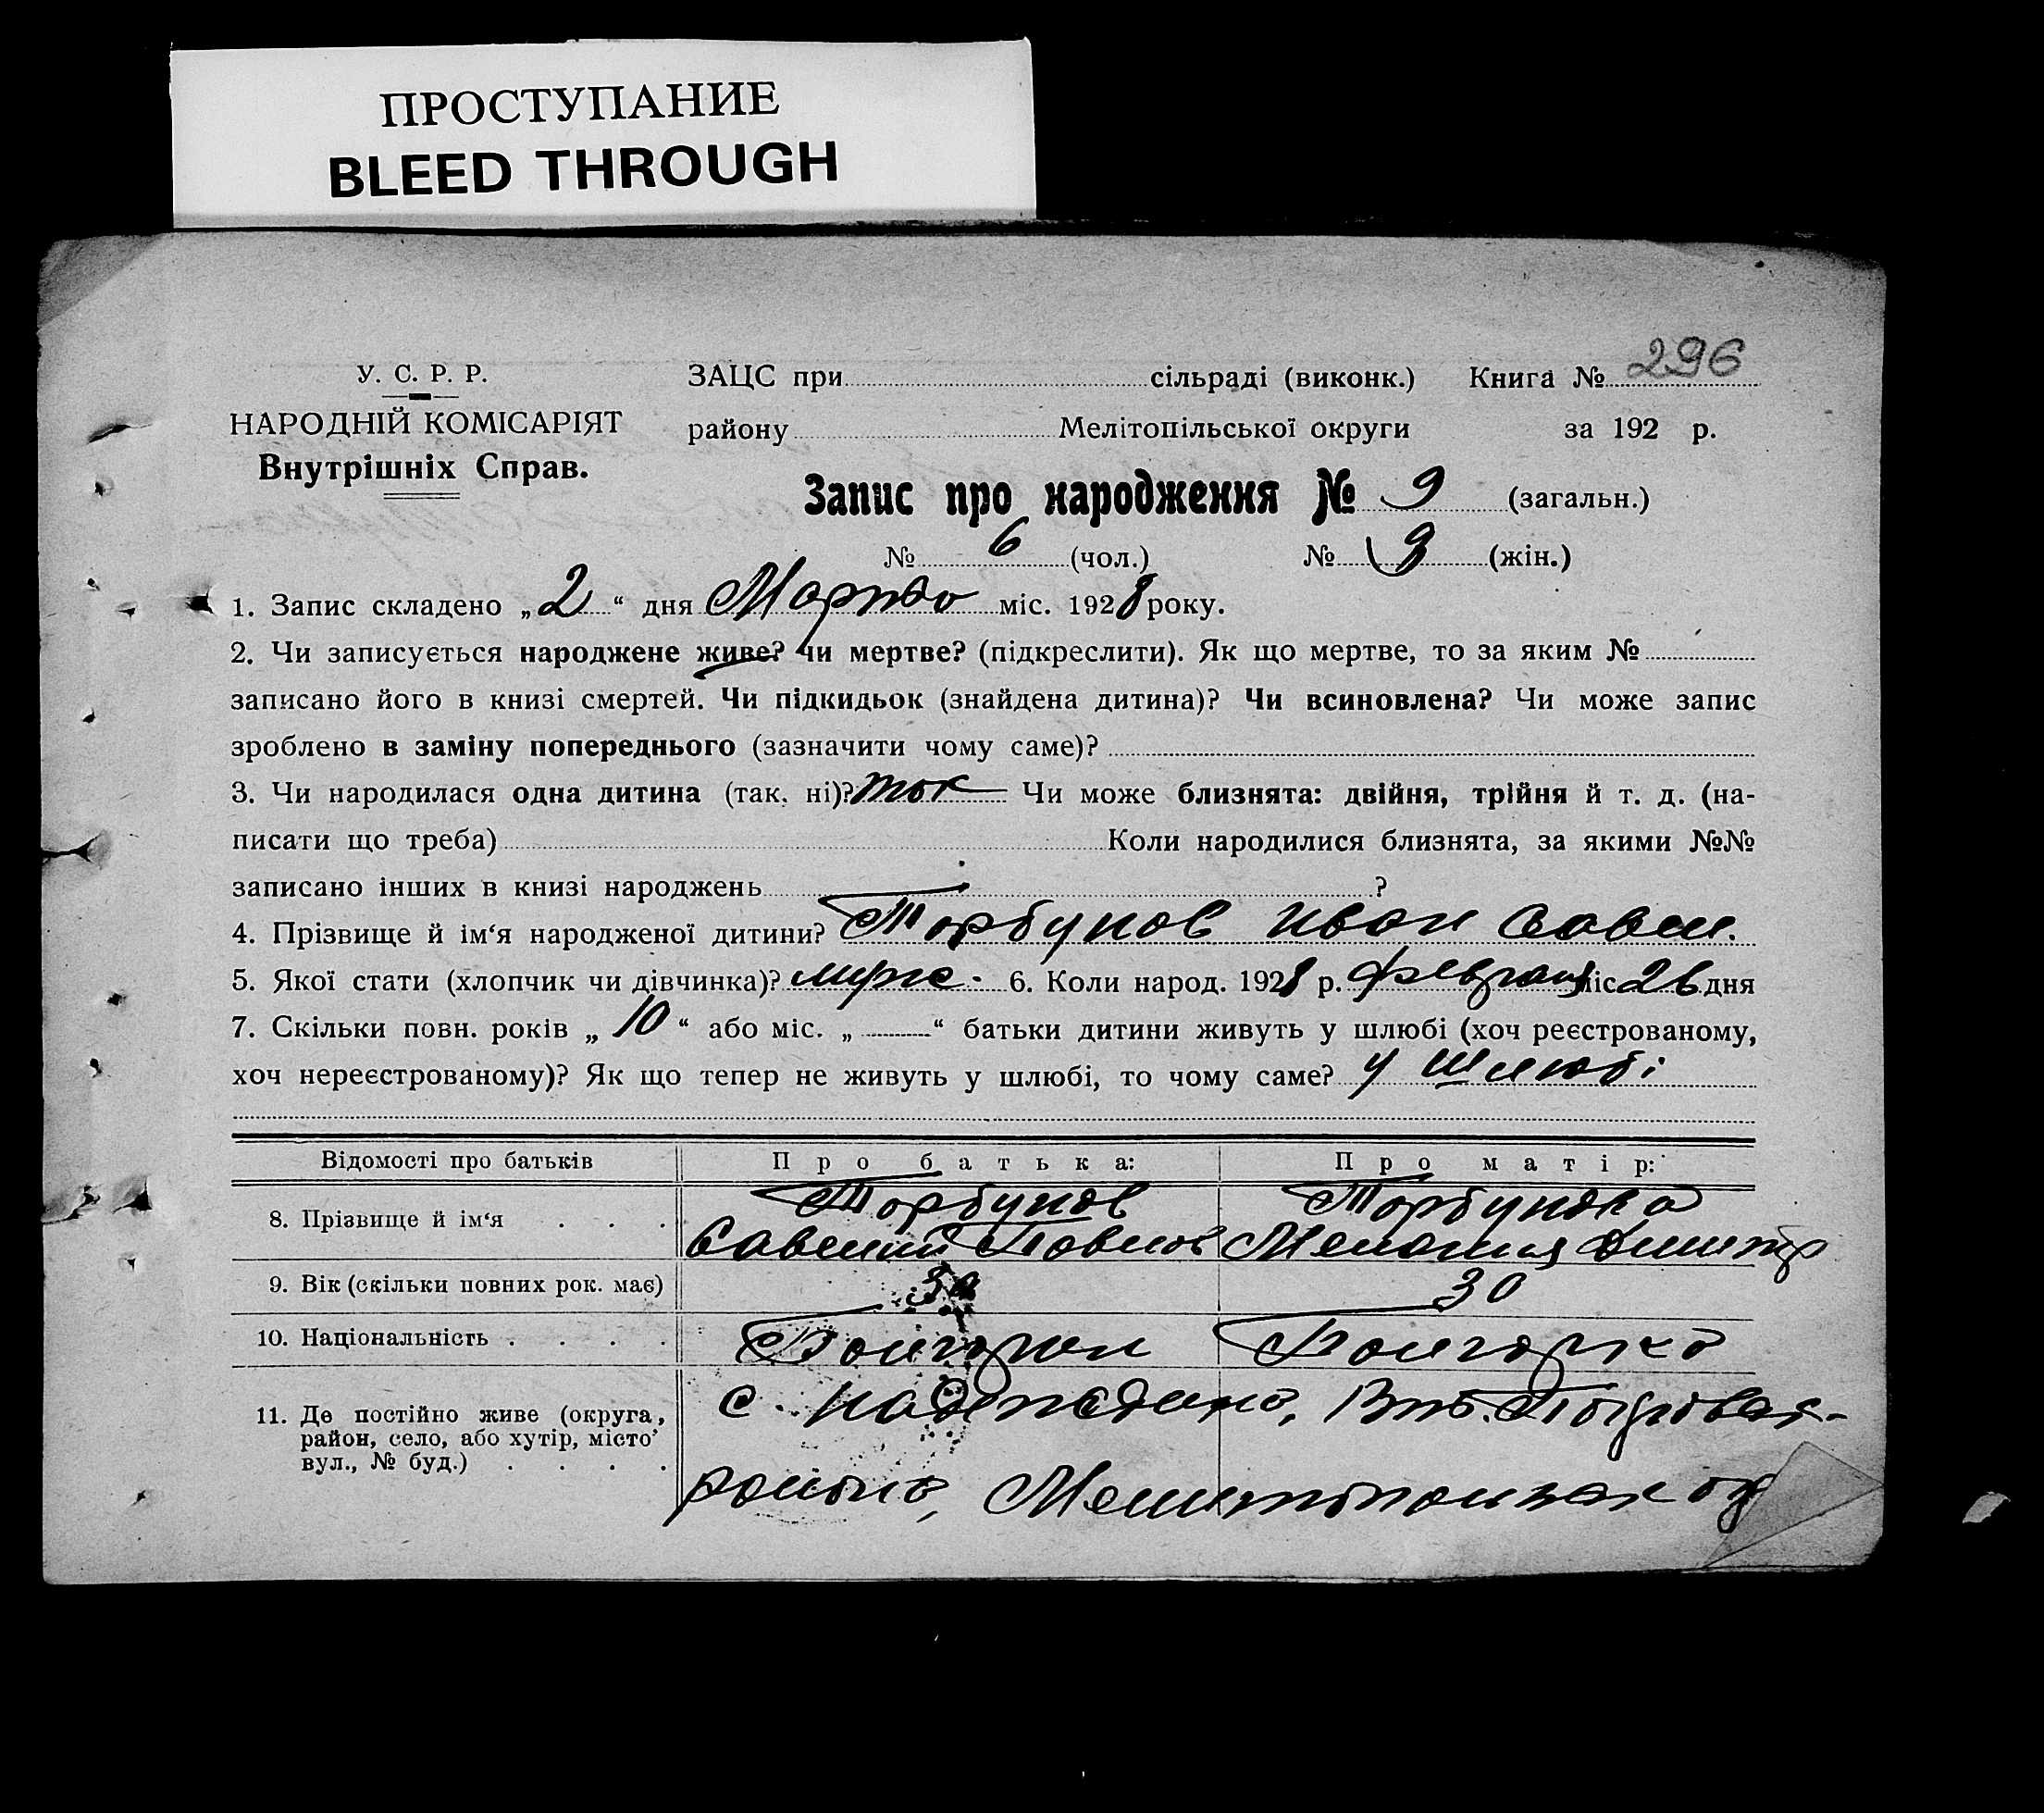 ПРОСТУПАНИЕ
BLEED THROUGH
У. С. Р. Р.
НАРОДНІЙ КОМІСАРІЯТ
Внутрішніх Справ.
ЗАЦС при сільраді (виконк.) Книга № 296
району Мелітопільської округи за 192 р.
Запис про народження № 9 (загальн.)
№ 6 (чол.) № 3 (жін.)
1. Запис складено „2“ дня Марта міс. 1928 року.
2. Чи записується народжене живе? чи мертве? (підкреслити). Як що мертве, то за яким №
записано його в книзі смертей. Чи підкидьок (знайдена дитина)? Чи всиновлена? Чи може запис
зроблено в заміну попереднього (зазначити чому саме)?
3. Чи народилася одна дитина (так, ні)? так Чи може близнята: двійня, трійня й т. д. (на-
писати що треба) Коли народилися близнята, за якими №№
записано інших в книзі народжень ?
4. Прізвище й ім‘я народженої дитини? Горбунов Иван Савел.
5. Якої стати (хлопчик чи дівчинка)? муже. 6. Коли народ. 1928 р. февраля міс 26 дня
7. Скільки повн. років „10“ або міс. „ “ батьки дитини живуть у шлюбі (хоч реєстрованому,
хоч нереєстрованому)? Як що тепер не живуть у шлюбі, то чому саме? у шлюбі
Відомості про батьків Про батька: Про матір:
8. Прізвище й ім‘я . . . Горбунов Горбунова
Савелий Павлов Мелания Дмитр
9. Вік (скільки повних рок. має) 30 30
10. Національність . . . . Болгарин Болгарка
11. Де постійно живе (округа,
район, село, або хутір, місто
вул., № буд.) . . . .
с. Надеждино,
района, Мелитопольск ок